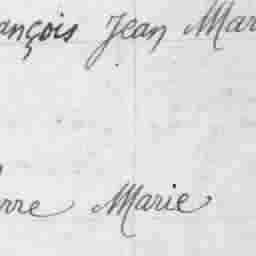 ançois Jean Mar
rre Marie